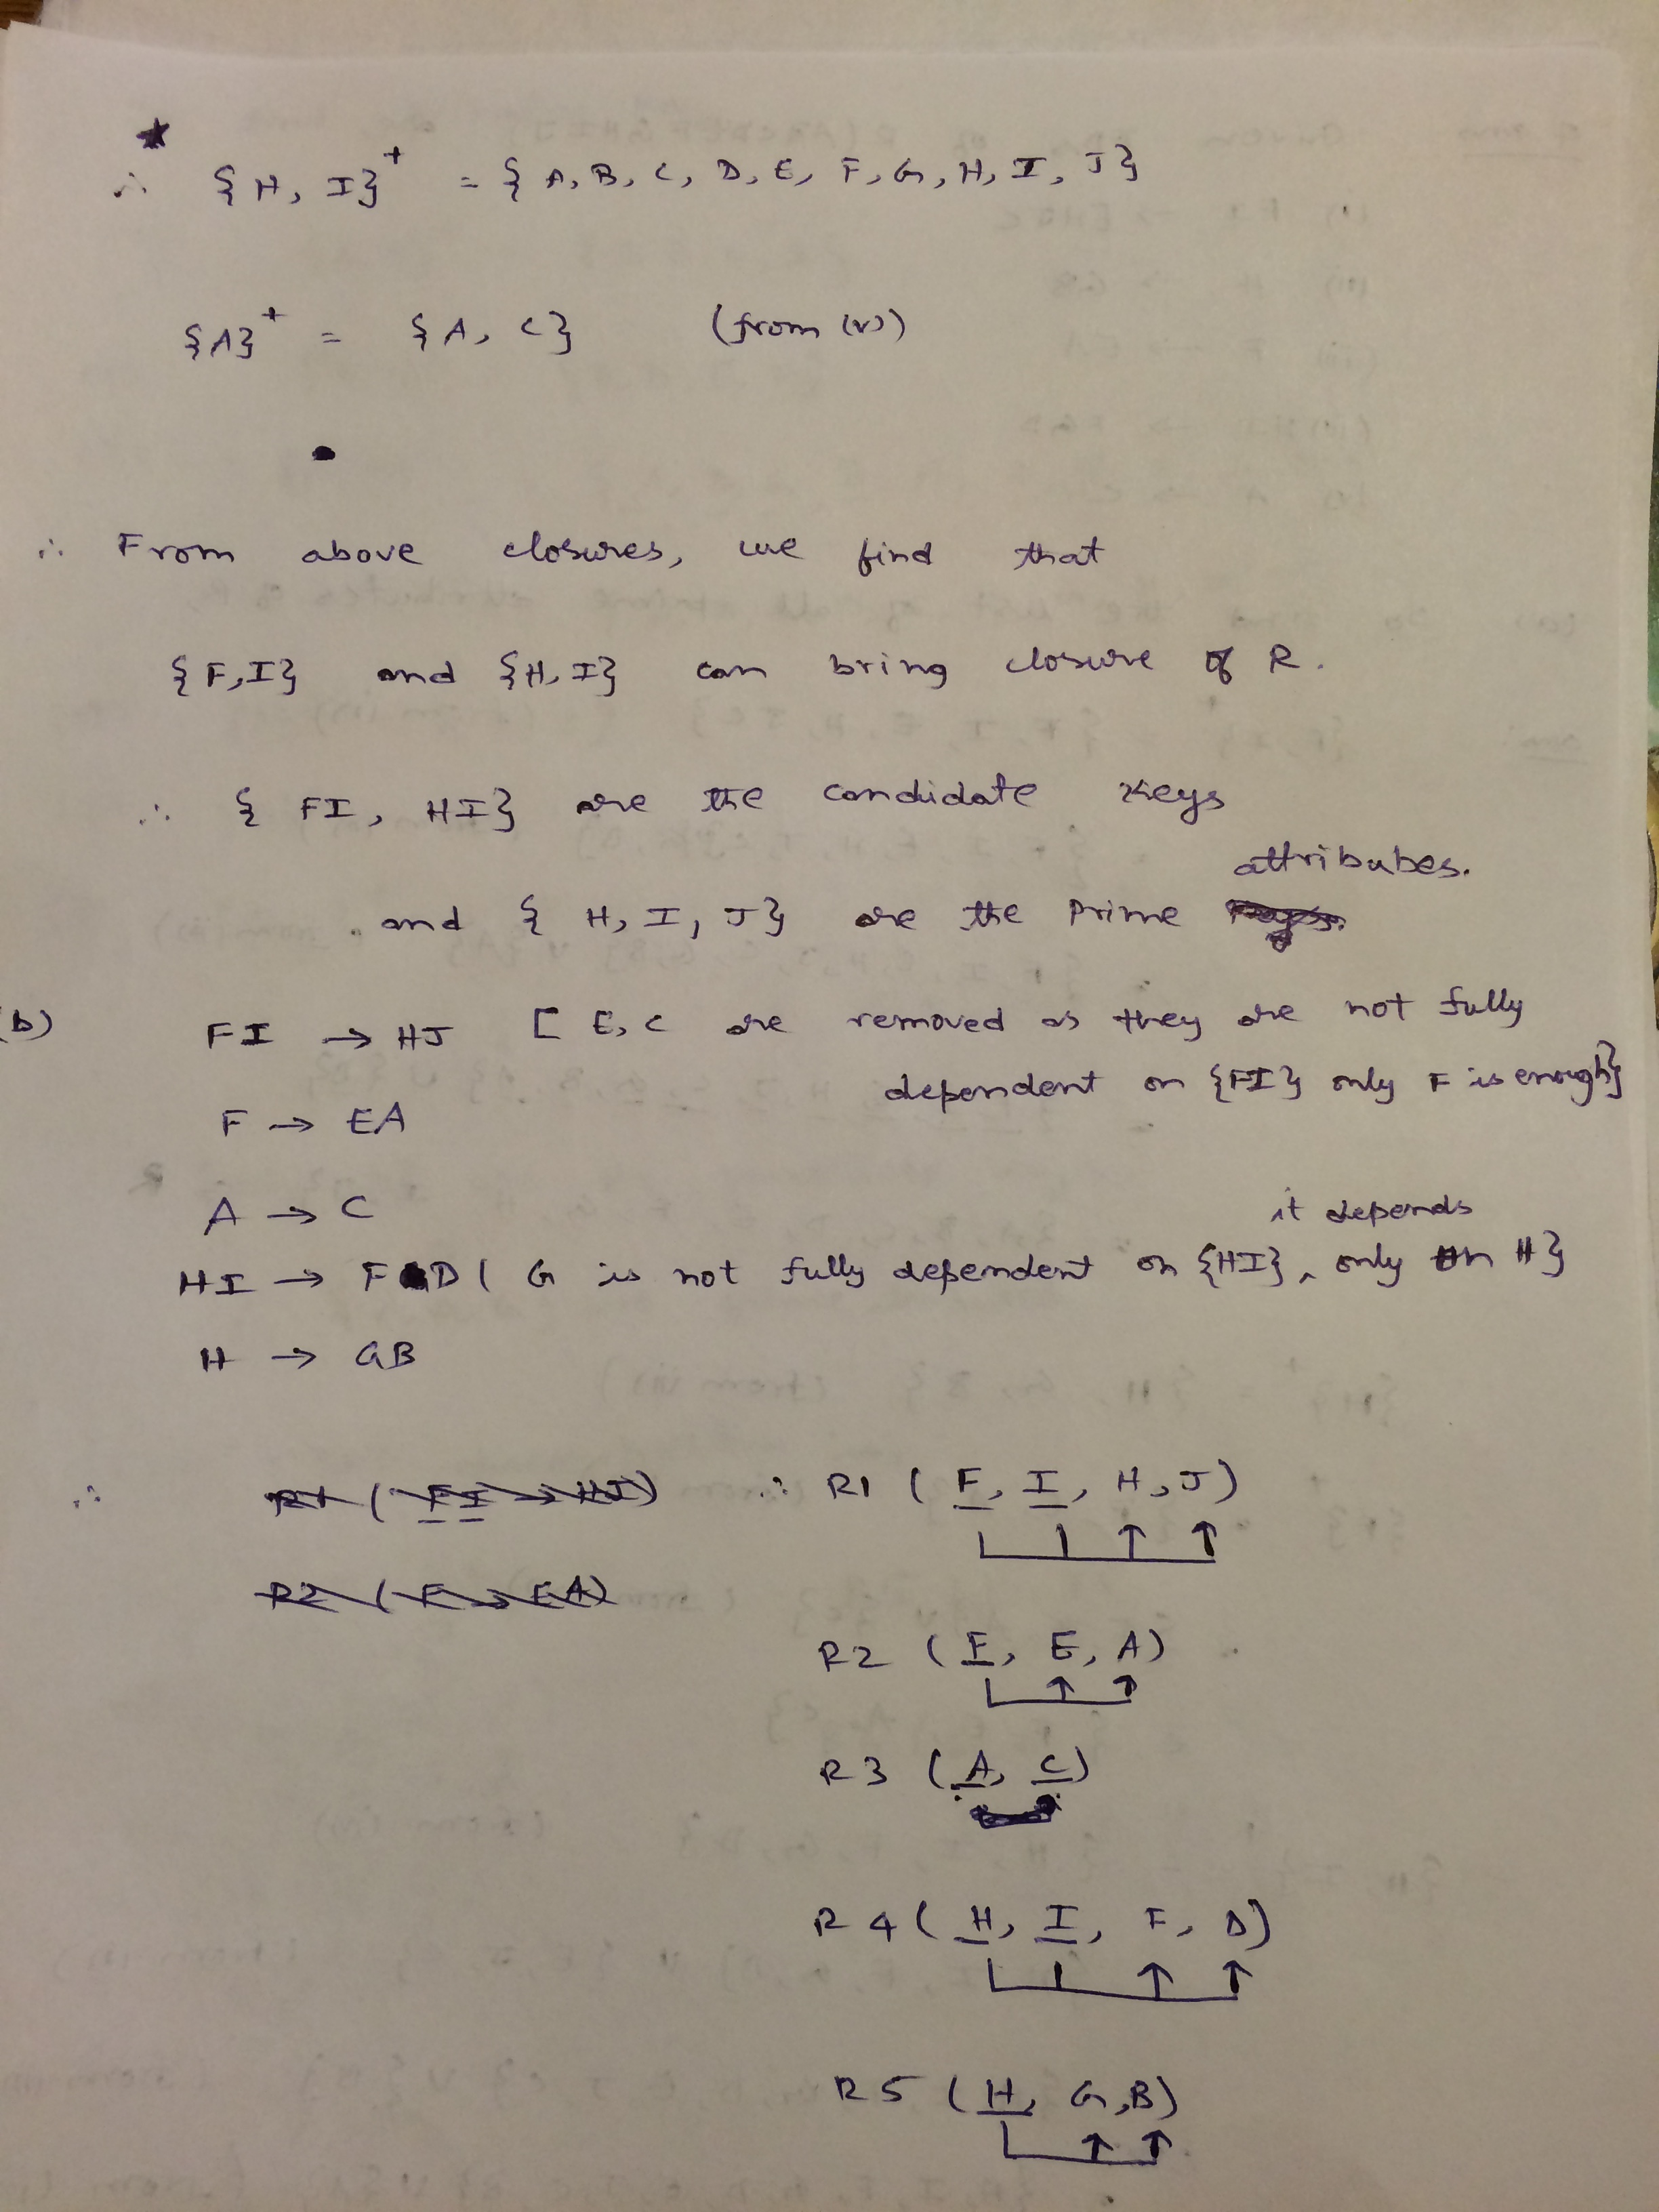 ∴ {H, I}⁺ = {A, B, C, D, E, F, G, H, I, J}
{A}⁺ = {A, C} (from (v))
∴ From above closures, we find that
{F,I} and {H,I} can bring closure of R.
∴ {FI, HI} are the candidate keys
attributes.
and {H, I, J} are the Prime
(b) FI → HJ [E, C are removed as they are not fully
dependent on {FI} only F is enough}
F → EA
A → C
it depends
HI → FD ( G is not fully dependent on {HI}, only on H}
H → GB
∴ R1 (FI → HJ) ∴ R1 (F, I, H, J)
R2 (F → EA)
R2 (F, E, A)
R3 (A, C)
R4 (H, I, F, D)
R5 (H, G, B)